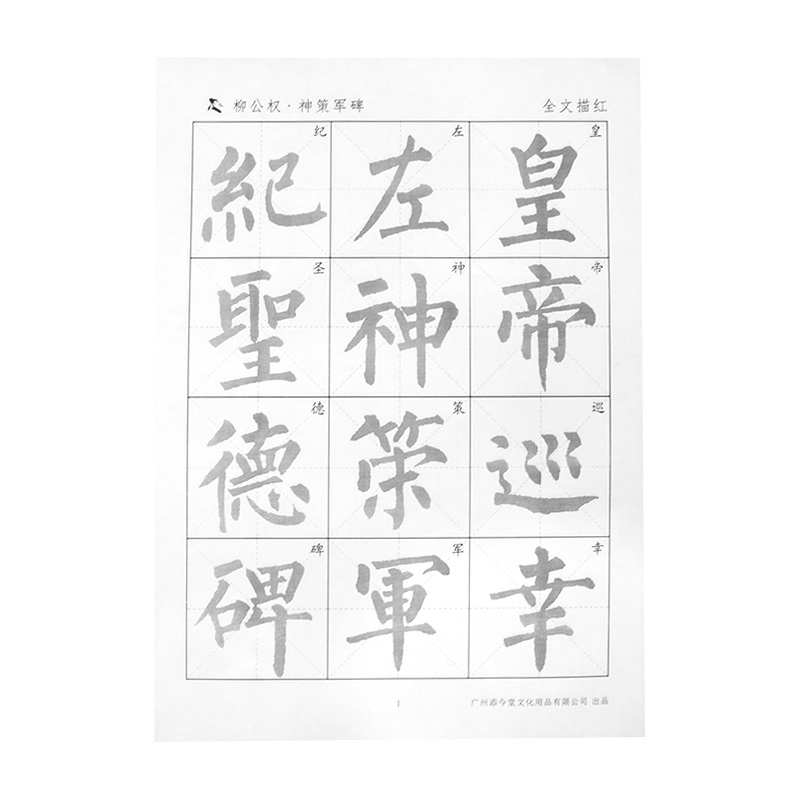 柳公权·神策军碑
全文描红
皇帝巡幸
皇帝巡幸
左神策軍
左神策军
紀聖德碑
纪圣德碑
1
广州添今堂文化用品有限公司 出品